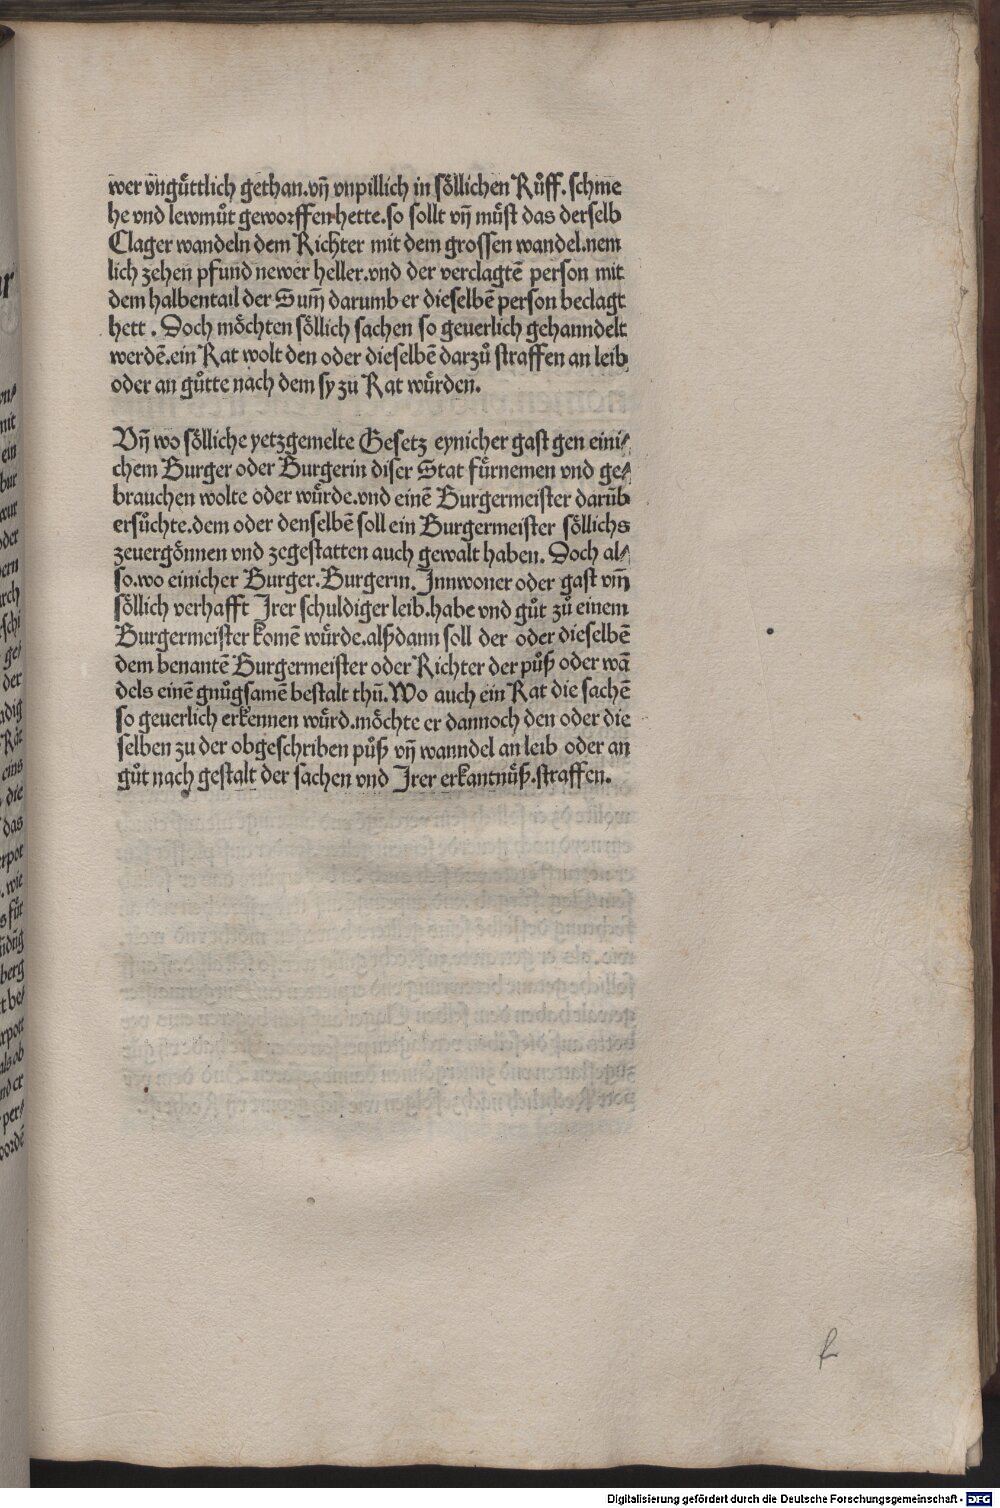 wer vngüttlich gethan.vn̄ vnpillich in söllichen Růff.schme
he vnd lewmůt geworffen hette.so sollt vn̄ müst das derselb
Clager wandeln dem Richter mit dem grossen wandel.nem
lich zehen pfund newer heller.vnd der verclagtē person mit
dem halbentail der Sum̄ darumb er dieselbē person beclagt
hett. Doch möchten söllich sachen so geuerlich gehanndelt
werdē.ein Rat wolt den oder dieselbē darzů straffen an leib
oder an gůtte nach dem sy zu Rat würden.
Vn̄ wo sölliche yetzgemelte Gesetz eynicher gast gen eini⸗
chem Burger oder Burgerin diser Stat fürnemen vnd ge⸗
brauchen wolte oder würde.vnd einē Burgermeister darūb
ersůchte.dem oder denselbē soll ein Burgermeister söllichs
zeuergönnen vnd zegestatten auch gewalt haben. Doch al⸗
so.wo einicher Burger.Burgerin. Innwoner oder gast vm̄
söllich verhafft Irer schuldiger leib.habe vnd gůt zů einem
Burgermeister komē würde.alßdann soll der oder dieselbē
dem benantē Burgermeister oder Richter der půß oder wā
dels einē gnůgsamē bestalt thů̄. Wo auch ein Rat die sachē
so geuerlich erkennen würd.möchte er dannoch den oder die
selben zu der obgeschriben půß vn̄ wanndel an leib oder an
gůt nach gestalt der sachen vnd Irer erkantnüß.straffen.
Digitalisierung gefördert durch die Deutsche Forschungsgemeinschaft - DFG